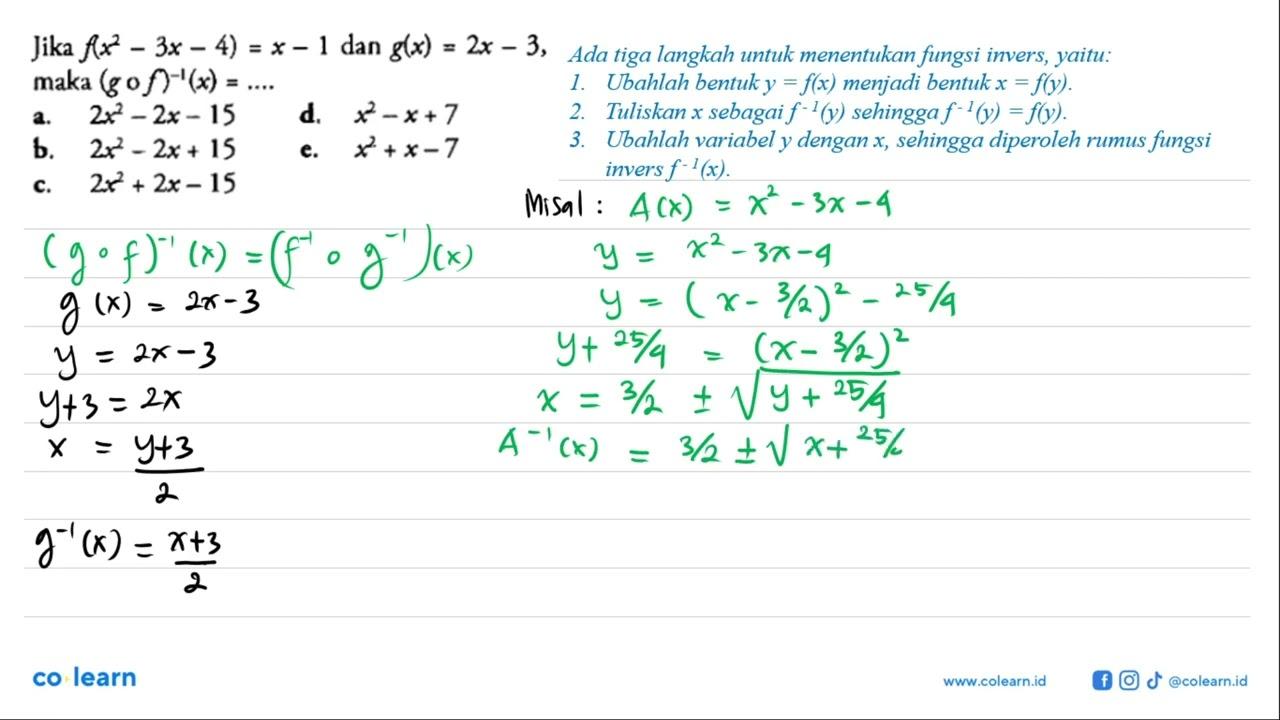 Jika f(x² − 3x − 4) = x − 1 dan g(x) = 2x − 3,
maka (g o f)⁻¹(x) = ....
a. 2x² − 2x − 15
b. 2x² − 2x + 15
c. 2x² + 2x − 15
d. x² − x + 7
e. x² + x − 7
Ada tiga langkah untuk menentukan fungsi invers, yaitu:
1. Ubahlah bentuk y = f(x) menjadi bentuk x = f(y).
2. Tuliskan x sebagai f⁻¹(y) sehingga f⁻¹(y) = f(y).
3. Ubahlah variabel y dengan x, sehingga diperoleh rumus fungsi
invers f⁻¹(x).
(g ∘ f)⁻¹ (x) = (f⁻¹ ∘ g⁻¹)(x)
g (x) = 2x − 3
y = 2x − 3
y+3 = 2x
x = y+3
2
g⁻¹(x) = x+3
2
Misal : A(x) = x² − 3x − 4
y = x² − 3x − 4
y = (x − 3/2)² − 25/4
y + 25/4 = (x − 3/2)²
x = 3/2 ± √y + 25/4
A⁻¹(x) = 3/2 ± √x + 25/
co learn
www.colearn.id
@colearn.id